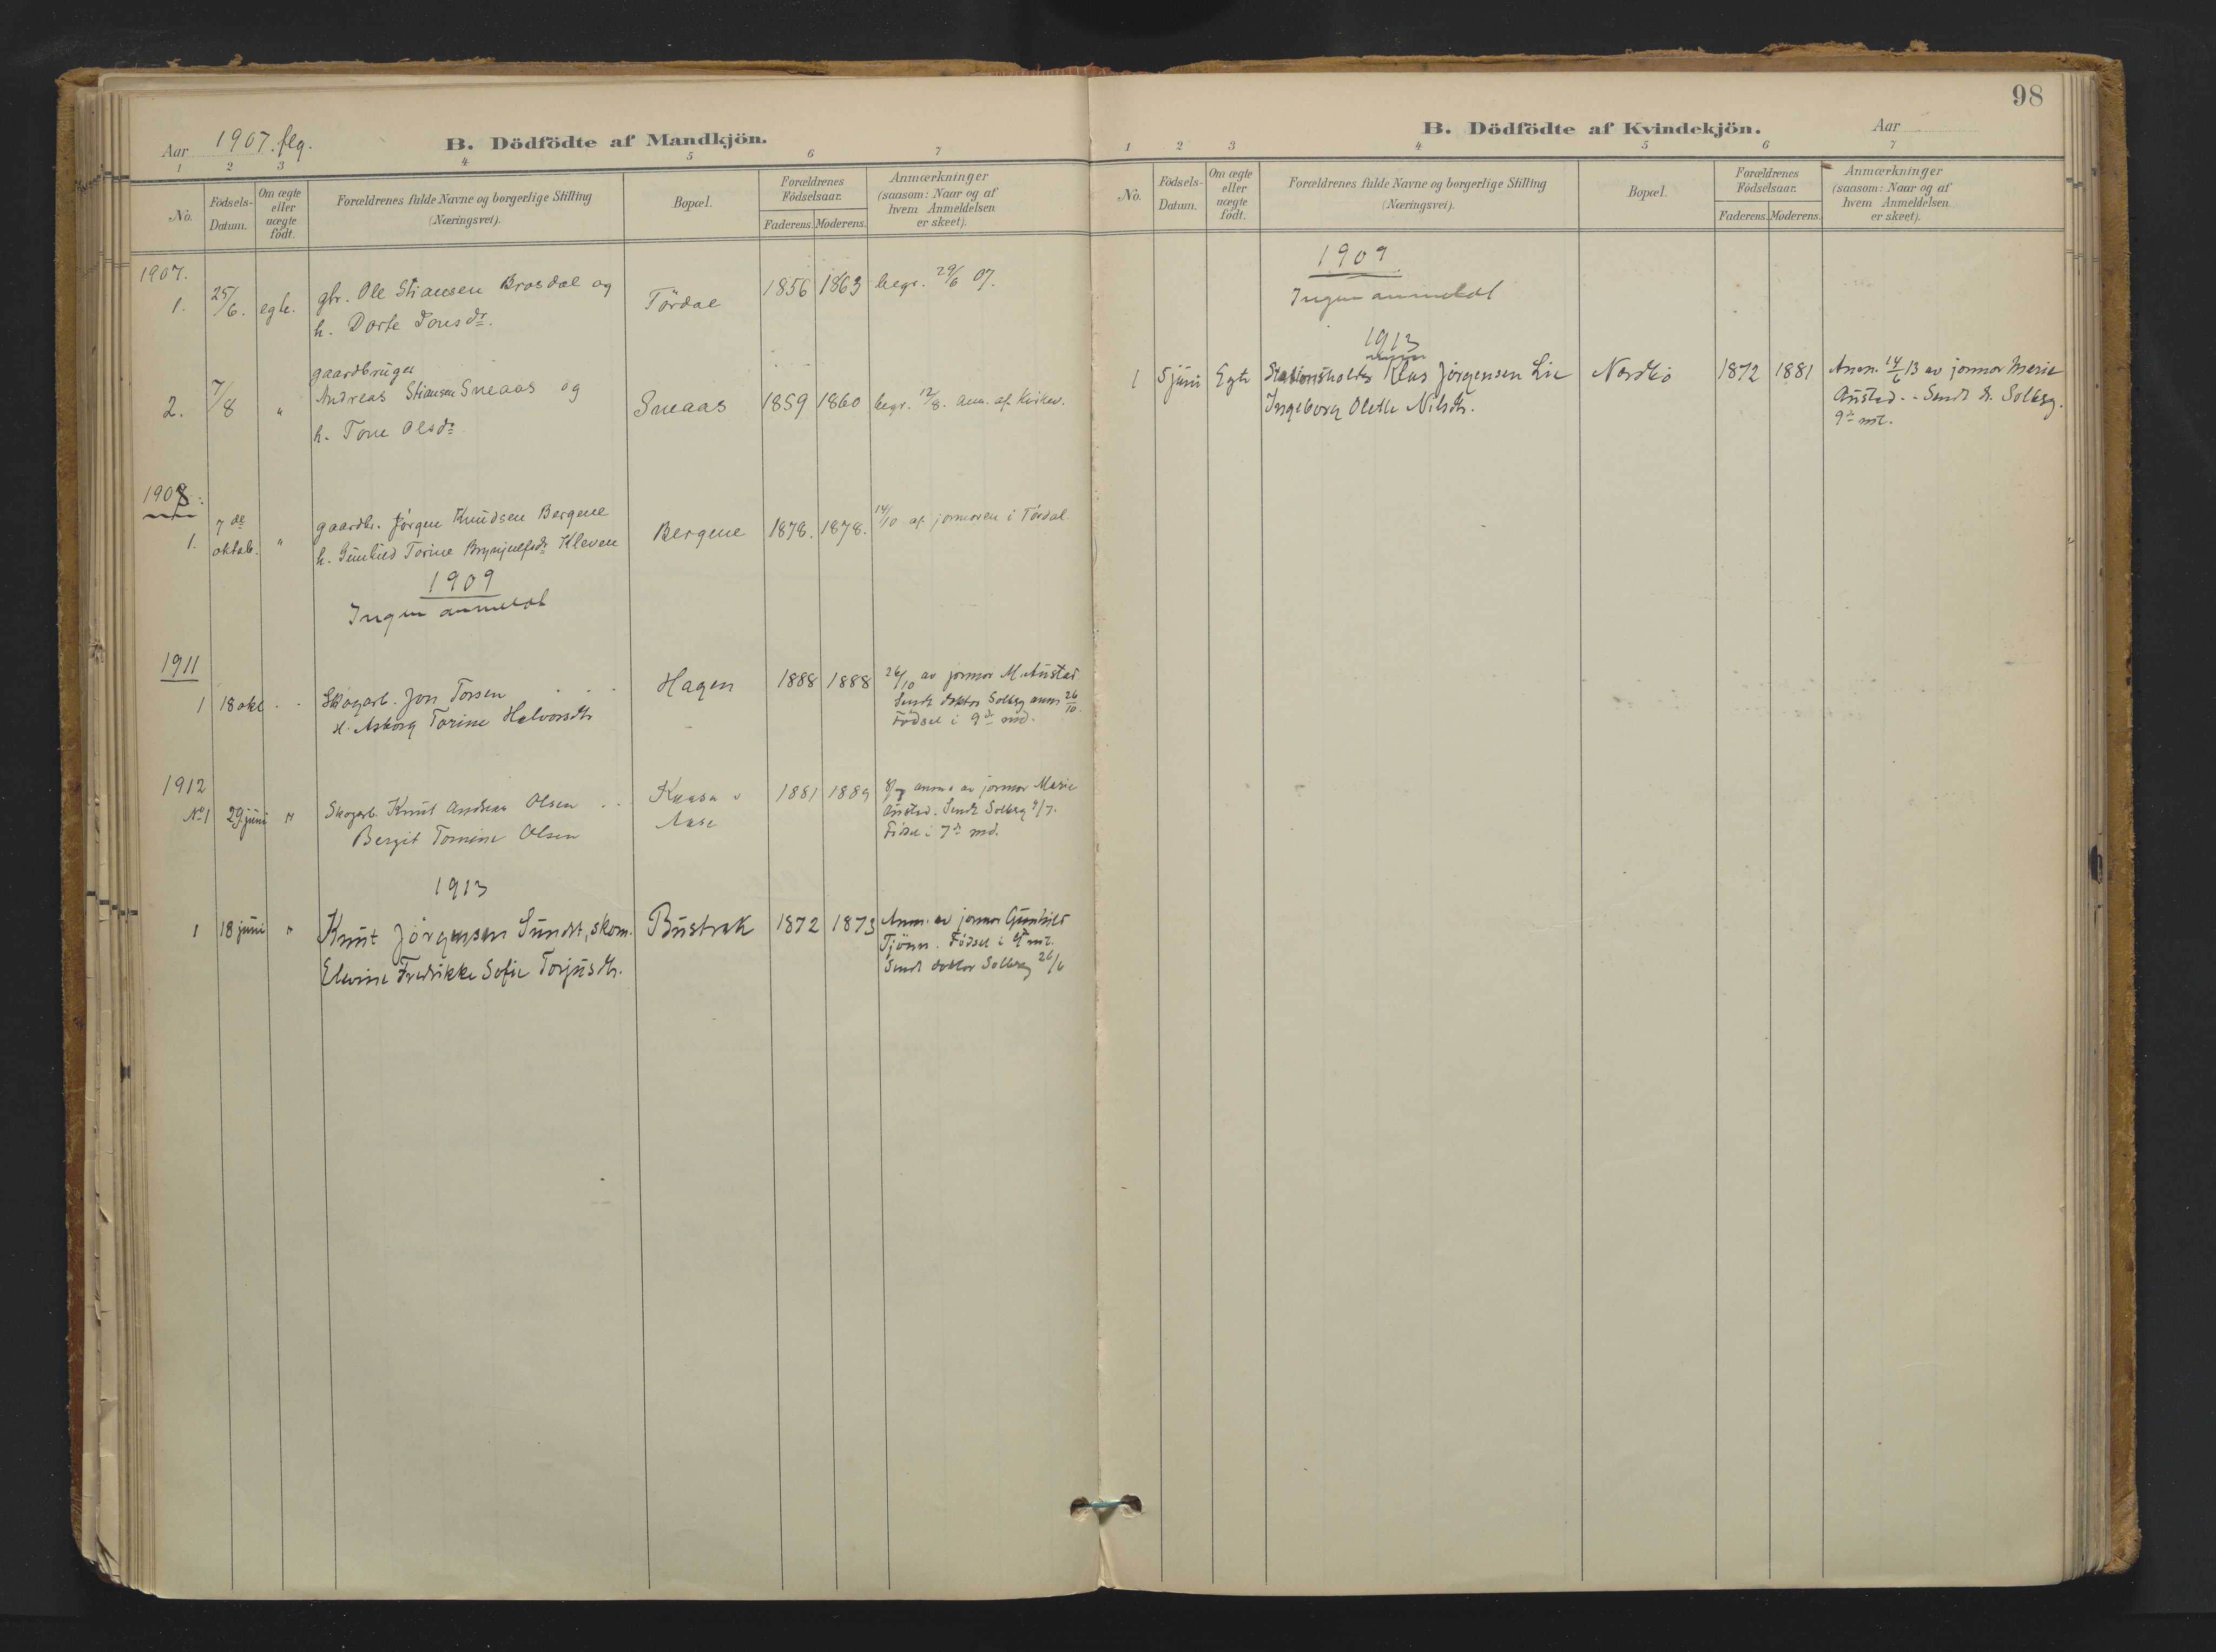 98
Aar 1907. flg.
B. Dödfödte af Mandkjön.
1 2 3 4 5 6 7
No.
Födsels-
Datum.
Om ægte
eller
uægte
födt.
Forældrenes fulde Navne og borgerlige Stilling
(Næringsvei).
Bopæl.
Forældrenes
Födselsaar.
Faderens. Moderens.
Anmærkninger
(saasom: Naar og af
hvem Anmeldelsen
er skeet).
1907.
1. 25/6. egte. gbr. Ole Stiansen Brosdal og Tördal 1856 1863 begr. 29/6 07.
h. Dorte Jonsdr.
gaardbruger
2. 7/8 " Andreas Stiansen Sneaas og Sneaas 1859 1860 begr. 12/8. anm. af Kirkev.
h. Tone Olsdr
1908.
1. 7de " gaardbr. Jörgen Knudsen Bergene Bergene 1878. 1878. 14/10 af jormoren i Tördal.
oktob. h. Gunhild Torine Brynjulfsdr Kleven
1909
Ingen anmeldt
1911
1 18 okt " Skogarb. Jon Torsen Hagen 1888 1888 26/10 av jormor M. Austad
H. Asborg Torine Halvorsdtr Sendt doktor Solberg anm 26/10.
Födsel i 9de md.
1912
No 1 29 juni " Skogarb. Knut Andreas Olsen 1881 1889 8/7 anm. av jormor Marie
Bergit Tomine Olsen Aase Austad. Sendt Solberg 9/7.
Födsel i 7de md.
1913
1 18 juni " Knut Jörgensen Sundst, skom. Bustrak 1872 1873 Anm. av jormor Gunhild
Elevine Fredrikke Sofie Torjusdtr. Tjönn. Födsel i 9de mt.
Sendt doktor Solberg 26/6
B. Dödfödte af Kvindekjön.
Aar
1 2 3 4 5 6 7
No.
Födsels-
Datum.
Om ægte
eller
uægte
födt.
Forældrenes fulde Navne og borgerlige Stilling
(Næringsvei).
Bopæl.
Forældrenes
Födselsaar.
Faderens. Moderens.
Anmærkninger
(saasom: Naar og af
hvem Anmeldelsen
er skeet).
1909
Ingen anmeldt
1913
1 5 juni Egte Stationsholder Klas Jörgensen Lie Nordbö 1872 1881 Anm. 14/6 13 av jormor Marie
Ingeborg Olette Nilsdtr. Austad. - Sendt d. Solberg.
9de mt.